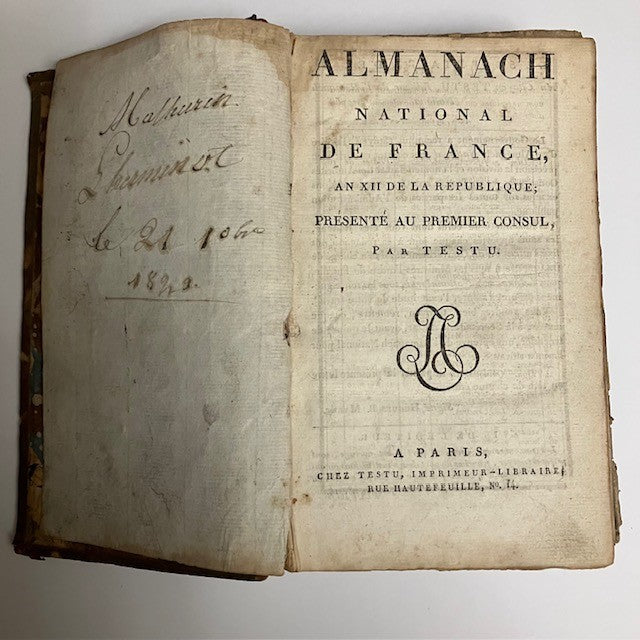 Mathurin
le 21 10bre
ALMANACH
NATIONAL
DE FRANCE,
AN XII DE LA REPUBLIQUE;
PRÉSENTÉ AU PREMIER CONSUL,
PAR TESTU.
A PARIS,
CHEZ TESTU, IMPRIMEUR-LIBRAIRE,
RUE HAUTEFEUILLE, No. 14.